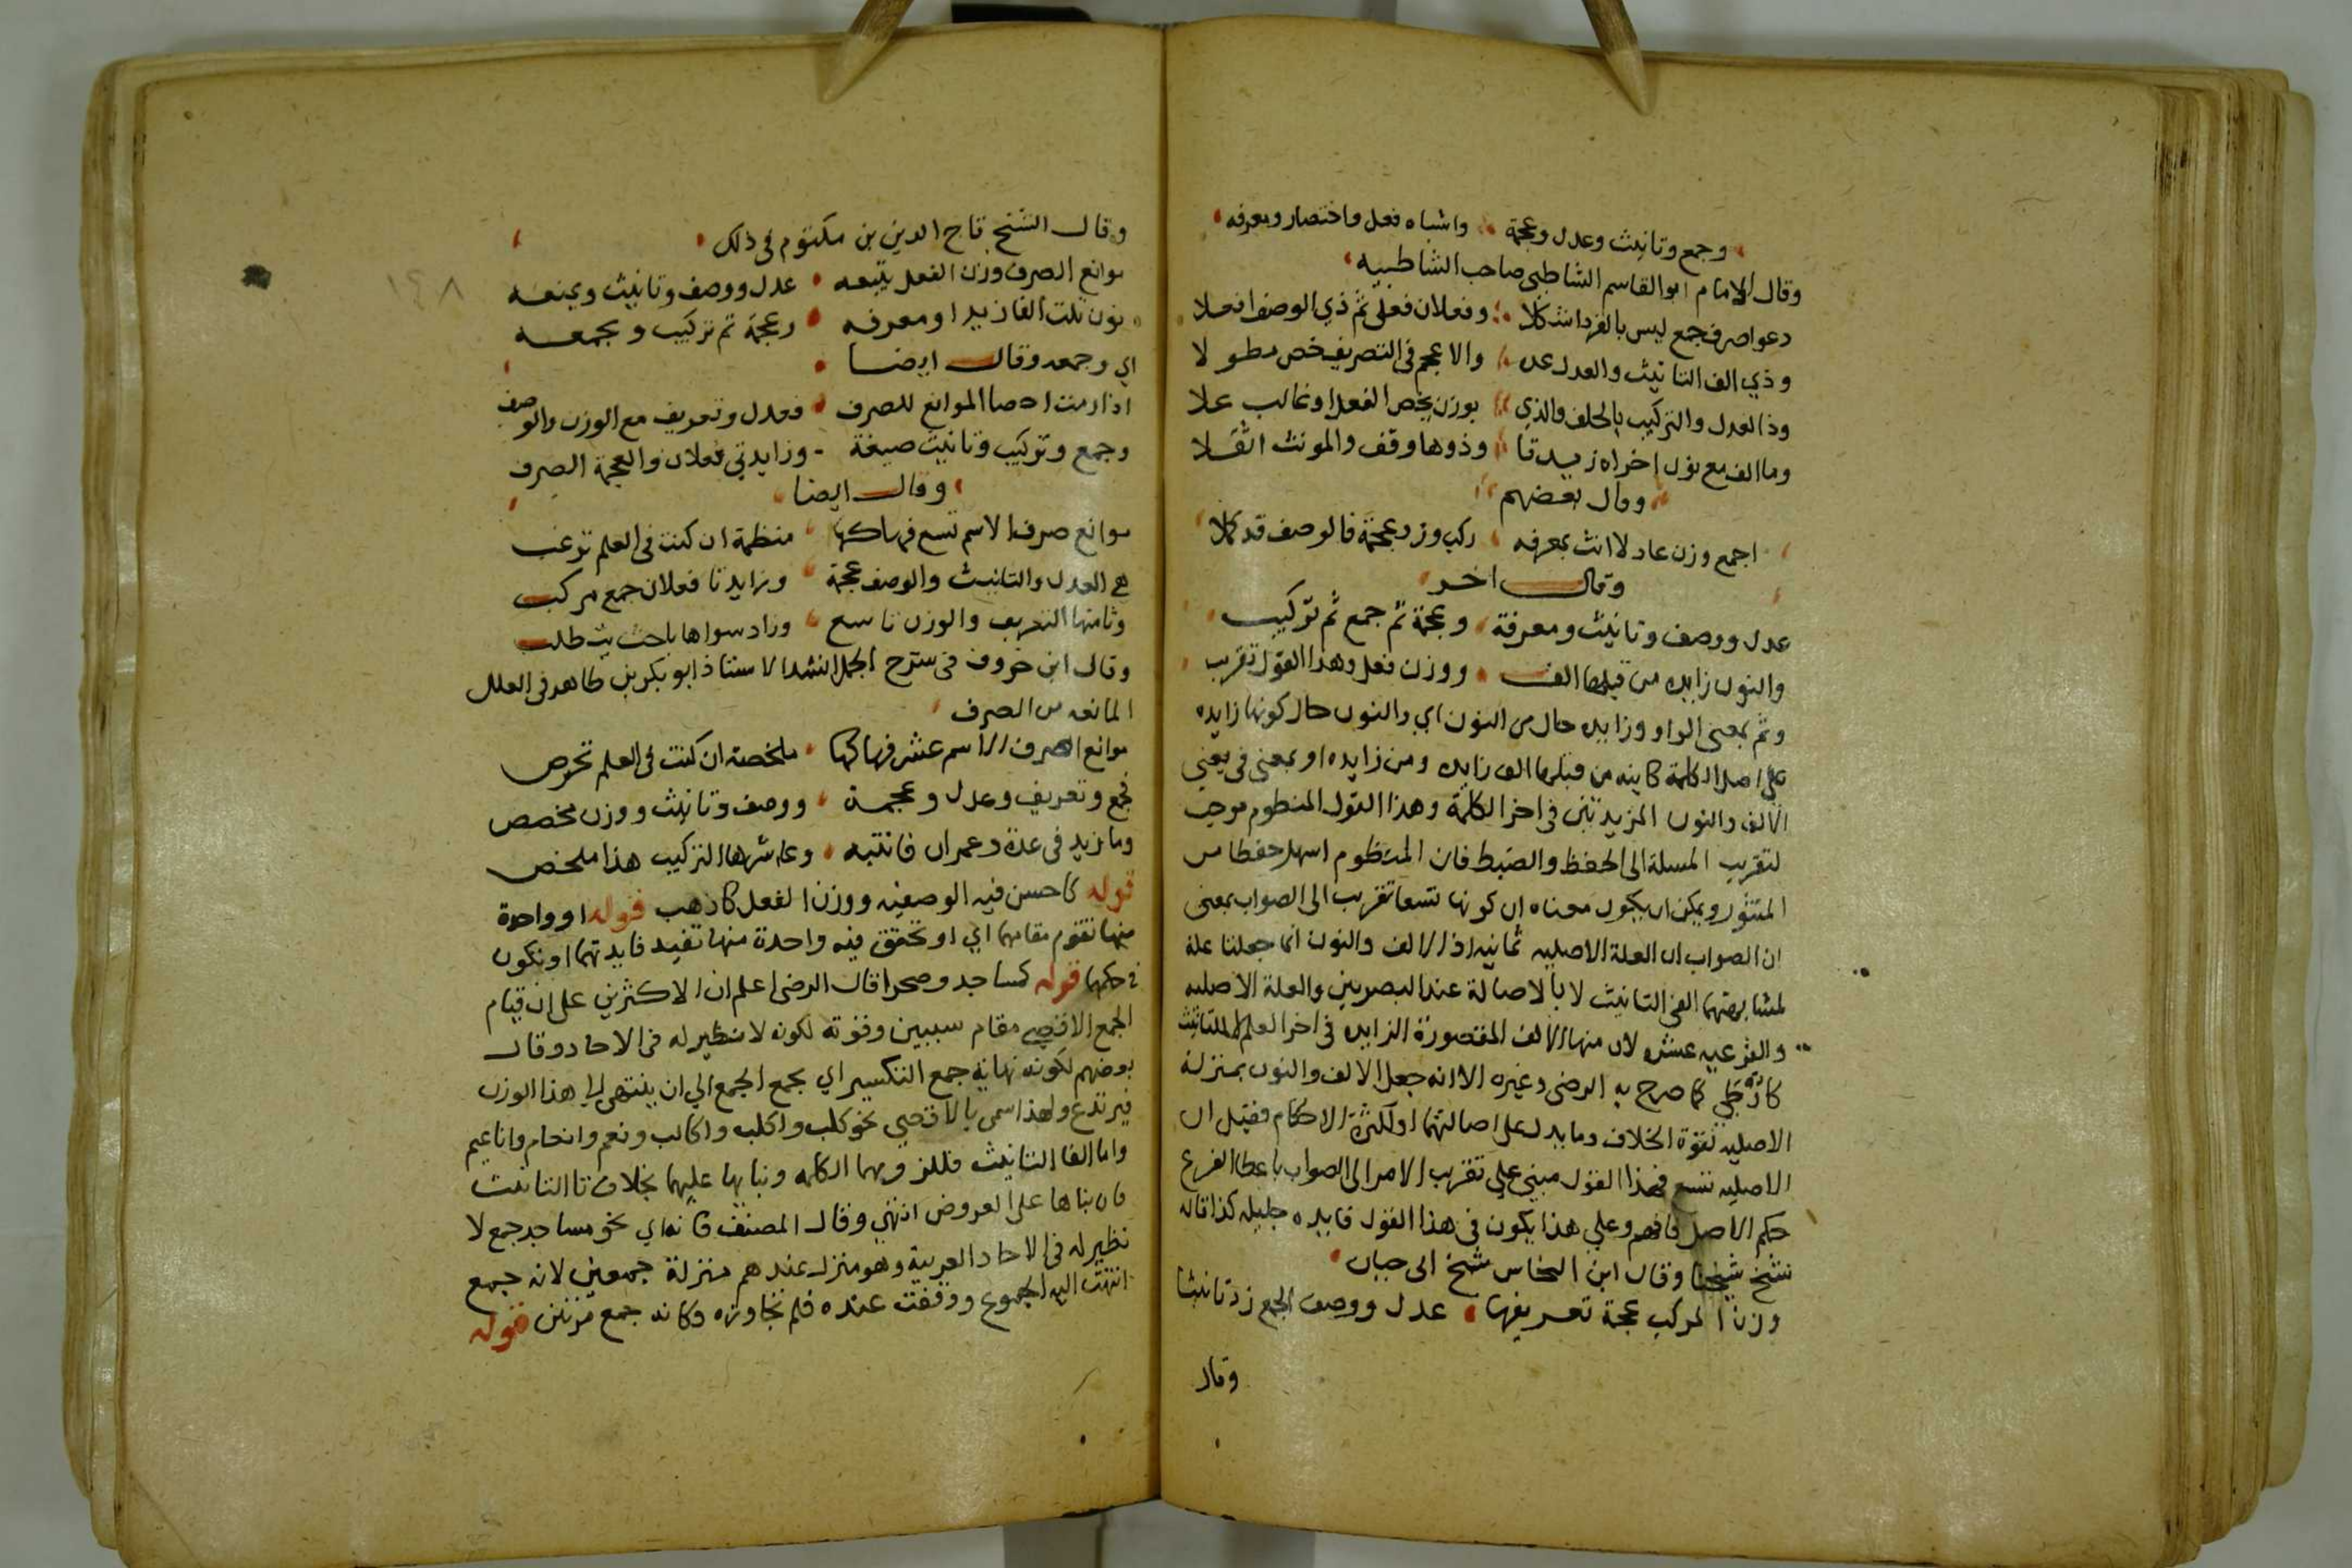 وجمع وتانيث وعدل وعجمة واشباه فعل واختصار ومعرفه
وقال الامام ابو القاسم الشاطبي صاحب الشاطبيه
دعوا صرف جمع ليس بالفرد اشكلا وفعلان فعلى ثم ذي الوصف افعلا
وذي الف التانيث والعدل عده والاعجم في التصريف خص مطولا
وذا العدل والتركيب بالخلف والذي بوزن يخص الفعل او غالب علا
وما الف مع نون اخراه زيدتا وذوها وقف والمونث اثقلا
وقال بعضهم
اجمع وزن عادلا انث بمعرفه ركب وزد عجمة فالوصف قد كملا
وقال اخر
عدل ووصف وتانيث ومعرفة وعجمة ثم جمع ثم تركيب
والنون زايده من قبلها الف ووزن فعل وهذا القول تقريب
وثم بمعنى الواو وزايده حال من النون اي والنون حال كونها زايده
على اصل الكلمة كاينه من قبلها الف زايده ومن زايده او بمعنى في يعني
الالف والنون المزيدتين في اخر الكلمة وهذا القول المنظوم موجب
لتقريب المسلة الى الحفظ والضبط فان المنظوم اسهل حفظا من
المنثور ويمكن ان يكون معناه ان كونها تسعا تقريب الى الصواب بمعنى
ان الصواب ان العلة الاصليه ثمانيه اذ الالف والنون انما جعلتا علة
لمشابهتهما الفي التانيث لا بالاصالة عند البصريين والعلة الاصليه
والفرعيه عشره لان منها الالف المقصورة الزايده في اخر العلم لا للتانيث
كارطي كما صرح به الرضى وغيره الا انه جعل الالف والنون بمنزلة
الاصليه لقوة الخلاف وما يدل على اصالتهما او لكثرة الاحكام فقيل ان
الاصليه تسع فهذا القول مبني على تقريب الامر الى الصواب باعطا الفرع
حكم الاصل فافهم وعلي هذا يكون في هذا القول فايده جليله كذا قاله
شيخ شيخنا وقال ابن النحاس شيخ ابي حيان
وزن المركب عجمة تعريفها عدل ووصف الجمع زد تانيثا
وقال
وقال الشيخ تاج الدين بن مكتوم في ذلك
موانع الصرف وزن الفعل يتبعه عدل ووصف وتانيث ويمنعه
نون تلت الفا زيدا ومعرفه وعجمة ثم تركيب وبجمعه
اي وجمعه وقال ايضا
اذا رمت احصا الموانع للصرف فعدل وتعريف مع الوزن والوصف
وجمع وتركيب وتانيث صيغة وزايدتي فعلان والعجمة الصرف
وقال ايضا
موانع صرف الاسم تسع فهاكها منظمة ان كنت في العلم ترغب
هي العدل والتانيث والوصف عجمة وزايدتا فعلان جمع مركب
وثامنها التعريف والوزن تاسع وزاد سواها باحث يتطلب
وقال ابن خروف في شرح الجمل انشد الاستاذ ابو بكر بن طاهر في العلل
المانعه من الصرف
موانع صرف الاسم عشر فهاكها ملخصة ان كنت في العلم تحرص
فجمع وتعريف وعدل وعجمة ووصف وتانيث ووزن مخصص
وما زيد في عدة وعمران فانتبه وعاشرها التركيب هذا ملخص
قوله كاحسن فيه الوصفيه ووزن الفعل كاذهب قوله او واحدة
منها تقوم مقامهما اي او تحقق فيه واحدة منها تفيد فايدتهما او تكون
في حكمها قوله كمساجد وصحرا قال الرضى اعلم ان الاكثرين على ان قيام
الجمع الاقصي مقام سببين وقوته لكونه لا نظير له في الاحاد وقال
بعضهم لكونه نهاية جمع التكسير اي يجمع الجمع الي ان ينتهي الي هذا الوزن
فيرتدع ولهذا سمى بالاقصي نحو كلب واكلب واكالب ونعم وانعام واناعيم
واما الفا التانيث فللزومهما الكلمه وبنايها عليهما بخلاف تا التانيث
فان بناها على العروض انتهي وقال المصنف فانه اي نحو مساجد جمع لا
نظير له في الاحاد العربية وهو منزل عندهم منزلة جمعين لانه جمع
انتهت اليه الجموع ووقفت عنده فلم تجاوزه وكانه جمع مرتين قوله